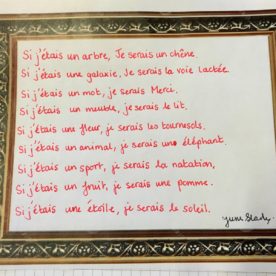 Si j'étais un arbre, Je serais un chêne.
Si j'étais une galaxie, Je serais la voie lactée.
Si j'étais un mot, je serais Merci.
Si j'étais un meuble, je serais le lit.
Si j'étais une fleur, je serais les tournesols.
Si j'étais un animal, je serais une éléphant.
Si j'étais un sport, je serais la natation,
Si j'étais un fruit, je serais une pomme.
Si j'étais une étoile, je serais le soleil.